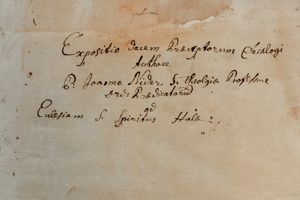 Expositio decem Præceptorum Decalogi
Authore
P. Joanne Nider S. Theologiæ Professore
Ord: Prædicatorum
ad
Eclesiam S. Spiritus Halæ.